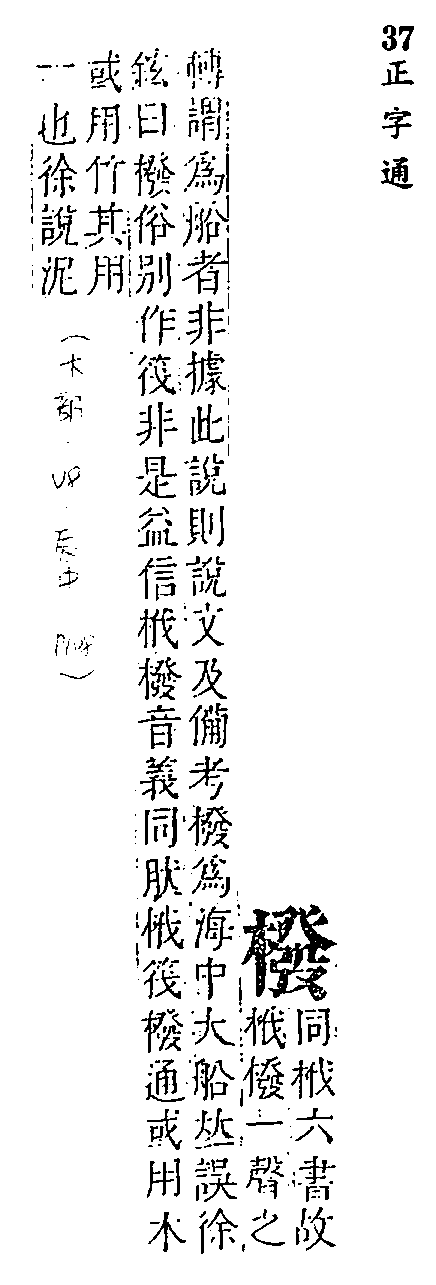 37正字通
橃
同栰六書故
栰橃一聲之
轉謂爲船者非據此說則說文及備考橃爲海中大船𠀤誤徐
鉉曰橃俗別作筏非是益信栰橃音義同肰栰筏橃通或用木
或用竹其用
一也徐說泥
（木部．V8．辰中